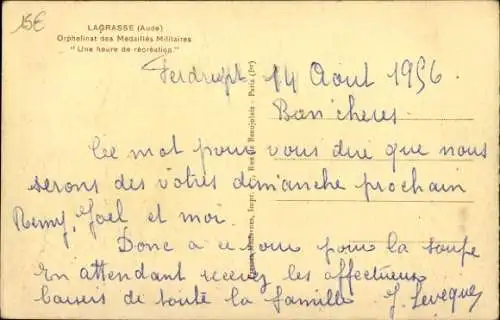 15€
LAGRASSE (Aude)
Orphelinat des Médaillés Militaires
"Une heure de récréation"
Ferdrupt 14 Aout 1956.
Ce mot pour vous dire que nous
serons des votres dimanche prochain
Remy, Joel et moi.
Donc a ce pour la soupe
En attendant recevez les affectueux
baisers de toute la famille J. Leveque